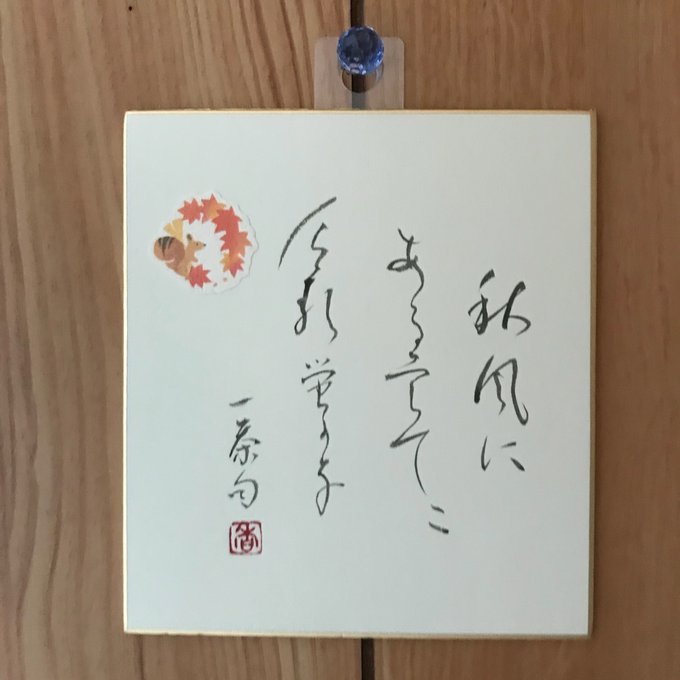 秋風に
あるいてに
類螢かな
一茶句
香